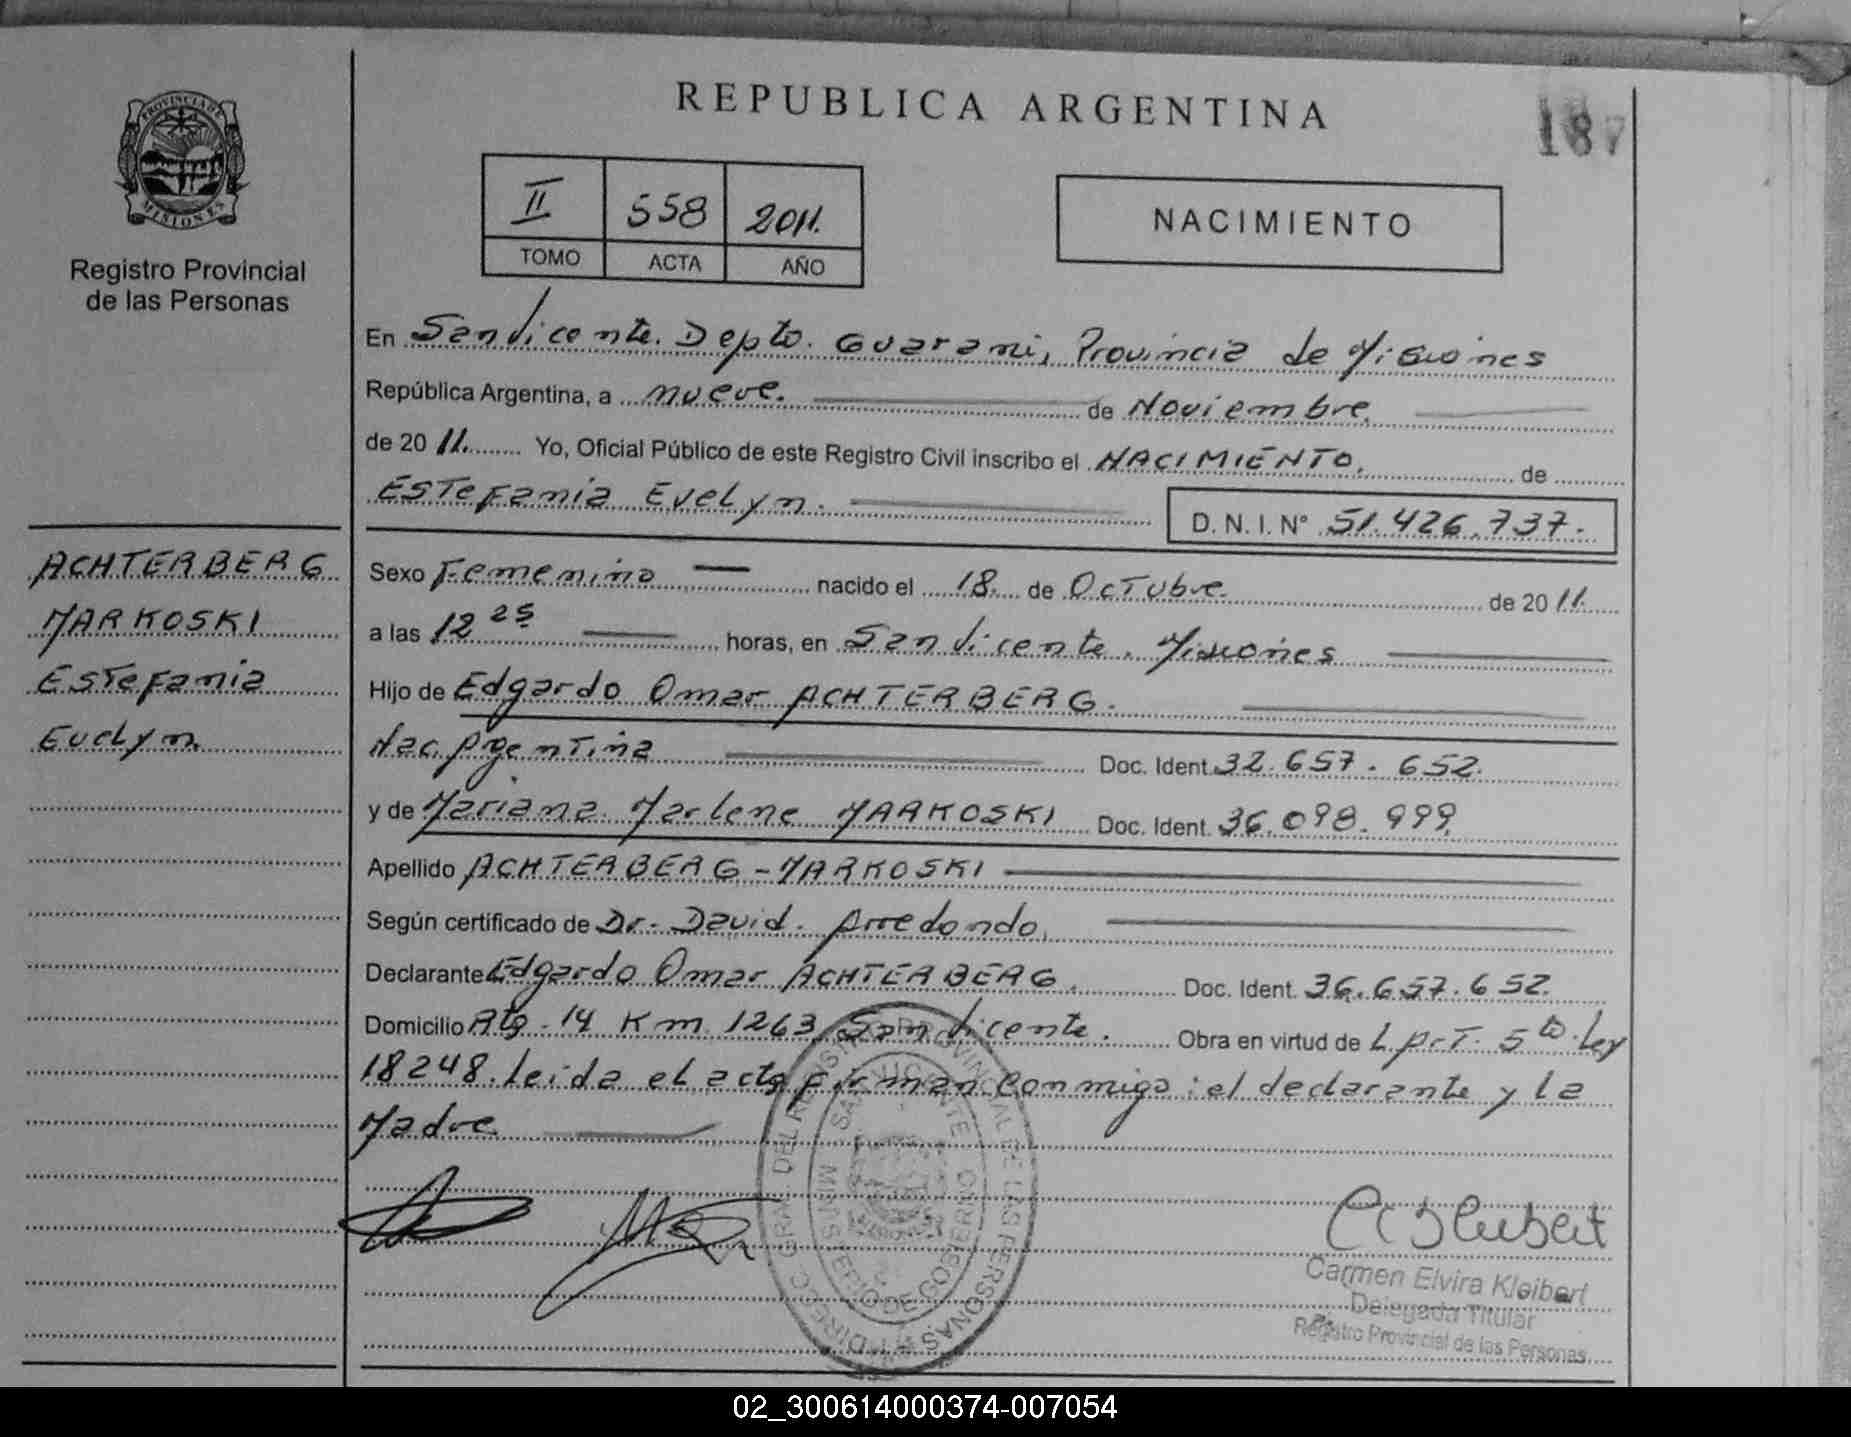 REPUBLICA ARGENTINA
187
PROVINCIA DE
MISIONES
Registro Provincial
de las Personas
II 558 2011.
TOMO ACTA AÑO
NACIMIENTO
En San Vicente. Depto. Guarani, Provincia de Misiones
República Argentina, a nueve. de Noviembre.
de 2011. Yo, Oficial Público de este Registro Civil inscribo el NACIMIENTO. de
Estefania Evelyn. D. N. I. N° 51.426.737.
ACHTERBERG
MARKOSKI
Estefania
Evelyn.
Sexo Femenino nacido el 18. de Octubre. de 2011.
a las 12 25 horas, en San Vicente. Misiones
Hijo de Edgardo Omar ACHTERBERG.
Nac. Argentina Doc. Ident. 32.657.652.
y de Mariana Marlene MARKOSKI Doc. Ident. 36.098.999.
Apellido ACHTERBERG - MARKOSKI
Según certificado de Dr. David. Arredondo.
Declarante Edgardo Omar ACHTERBERG. Doc. Ident. 36.657.652.
Domicilio Rta. 14 Km 1263 San Vicente. Obra en virtud de L. Art. 5to. Ley
18248. Leida el acta firman conmigo: el declarante y la
Madre
DIRECC. GRAL. DEL REGISTRO PROVINCIAL DE LAS PERSONAS
SAN VICENTE
MINISTERIO DE GOBIERNO
Carmen Elvira Kleibert
Delegada Titular
Registro Provincial de las Personas
02_300614000374-007054